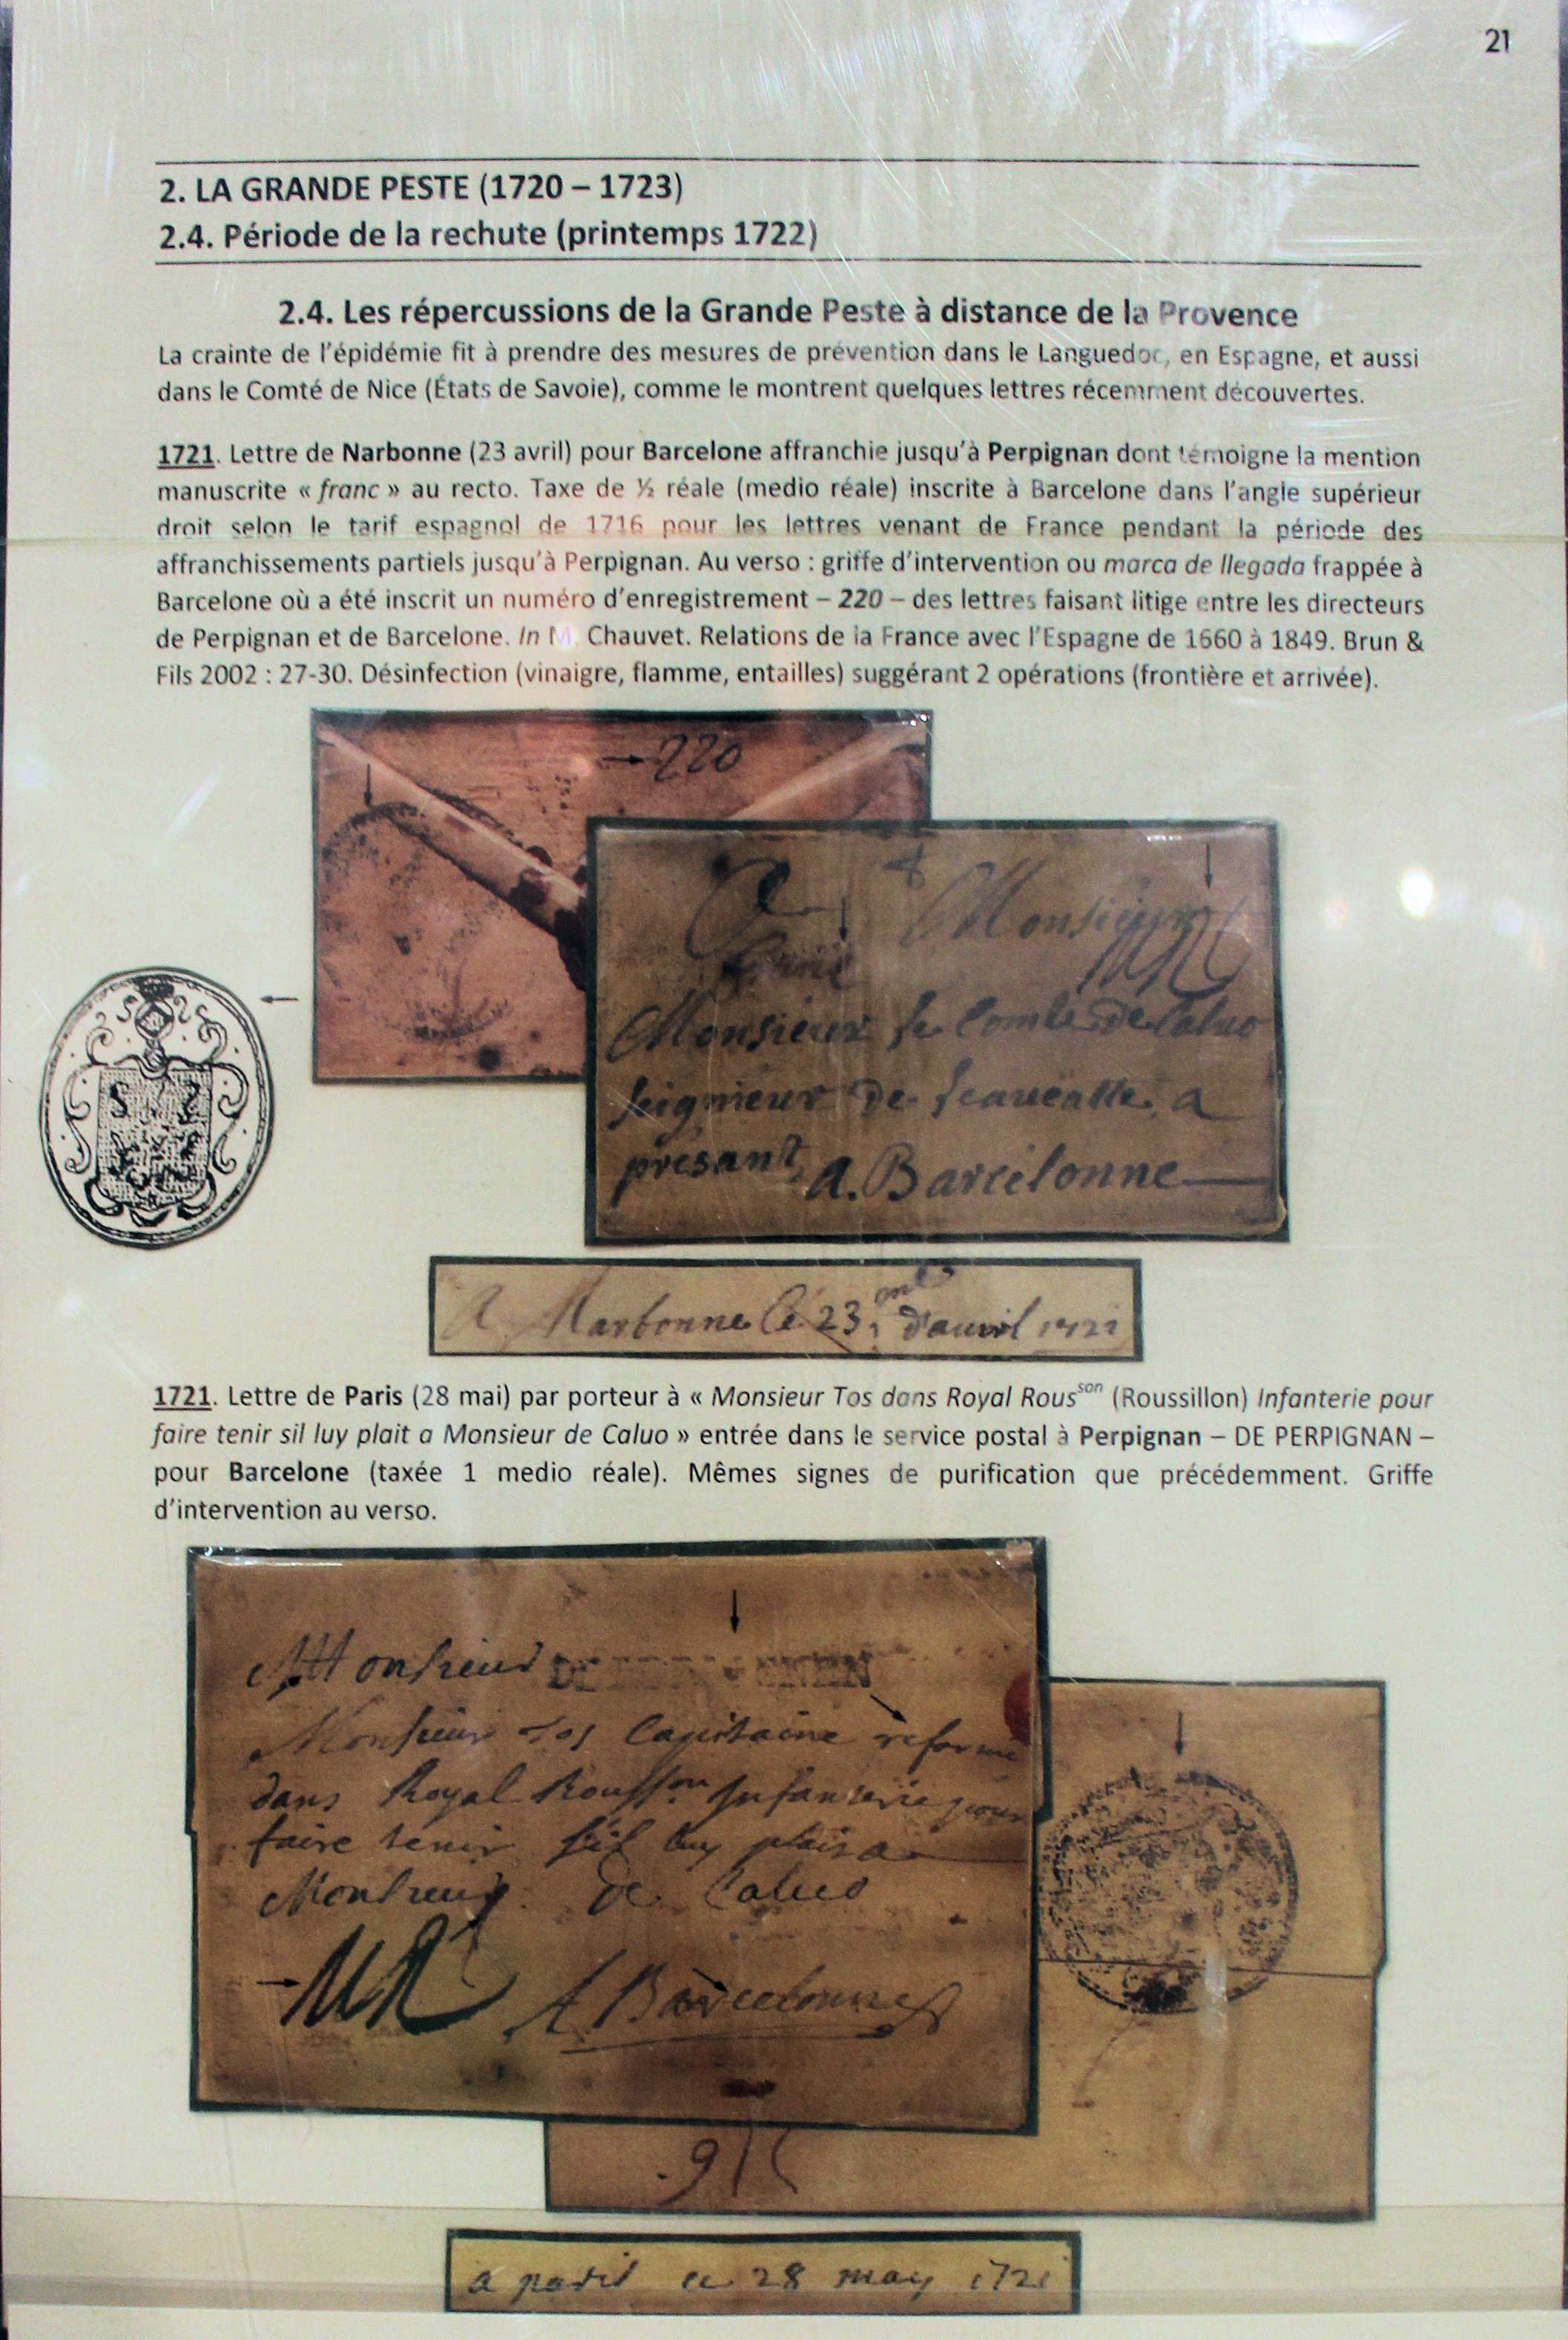 21
2. LA GRANDE PESTE (1720 – 1723)
2.4. Période de la rechute (printemps 1722)
2.4. Les répercussions de la Grande Peste à distance de la Provence
La crainte de l'épidémie fit à prendre des mesures de prévention dans le Languedoc, en Espagne, et aussi
dans le Comté de Nice (États de Savoie), comme le montrent quelques lettres récemment découvertes.
1721. Lettre de Narbonne (23 avril) pour Barcelone affranchie jusqu'à Perpignan dont témoigne la mention
manuscrite « franc » au recto. Taxe de ½ réale (medio réale) inscrite à Barcelone dans l'angle supérieur
droit selon le tarif espagnol de 1716 pour les lettres venant de France pendant la période des
affranchissements partiels jusqu'à Perpignan. Au verso : griffe d'intervention ou marca de llegada frappée à
Barcelone où a été inscrit un numéro d'enregistrement – 220 – des lettres faisant litige entre les directeurs
de Perpignan et de Barcelone. In M. Chauvet. Relations de la France avec l'Espagne de 1660 à 1849. Brun &
Fils 2002 : 27-30. Désinfection (vinaigre, flamme, entailles) suggérant 2 opérations (frontière et arrivée).
220
A Monsieur
Monsieur le Comte de Caluo
seignieur de a
presant a. Barcelonne
A Narbonne le 23 d'auvril 1721
1721. Lettre de Paris (28 mai) par porteur à « Monsieur Tos dans Royal Rousson (Roussillon) Infanterie pour
faire tenir sil luy plait a Monsieur de Caluo » entrée dans le service postal à Perpignan – DE PERPIGNAN –
pour Barcelone (taxée 1 medio réale). Mêmes signes de purification que précédemment. Griffe
d'intervention au verso.
Monsieur
Monsieur Tos Capitaine reformé
dans Royal Rousson Infanterie pour
faire tenir sil luy plait a
Monsieur de Caluo
A Barcelonne
a paris ce 28 may 1721